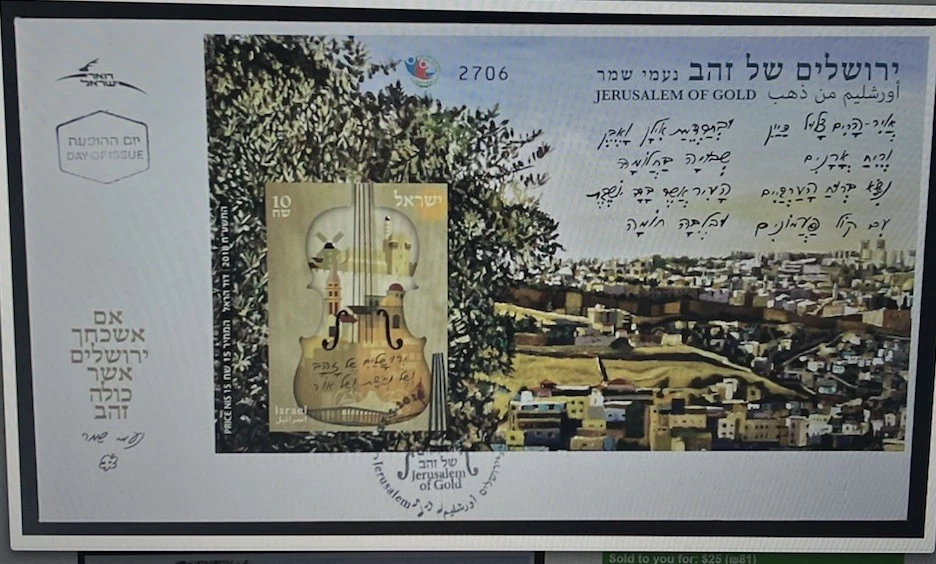 דואר ישראל
יום ההופעה
DAY OF ISSUE
אם
אשכחך
ירושלים
אשר
כולה
זהב
נעמי שמר
2706
ירושלים של זהב נעמי שמר
JERUSALEM OF GOLD أورشليم من ذهب
אויר-הרים צלול כיין
וריח ארנים
נשא ברוח הערביים
עם קול פעמונים
ובתרדמת אילן ואבן
שבויה בחלומה
העיר אשר בדד יושבת
ובלבה חומה
PRICE NIS 15 המחיר 15 שח 2018
10
שח
ישראל
ירושלים של זהב
ושל נחשת ושל אור
Israel
اسرائيل
של זהב
Jerusalem
of Gold
Jerusalem ירושלים أورشليم
Sold to you for: $25 (₪81)